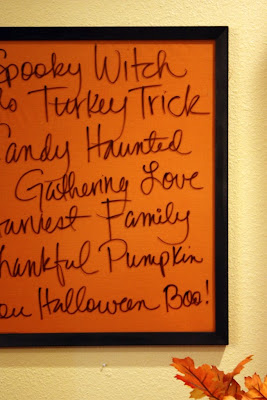 Spooky Witch
Turkey Trick
Candy Haunted
Gathering Love
Harvest Family
Thankful Pumpkin
Halloween Boo!